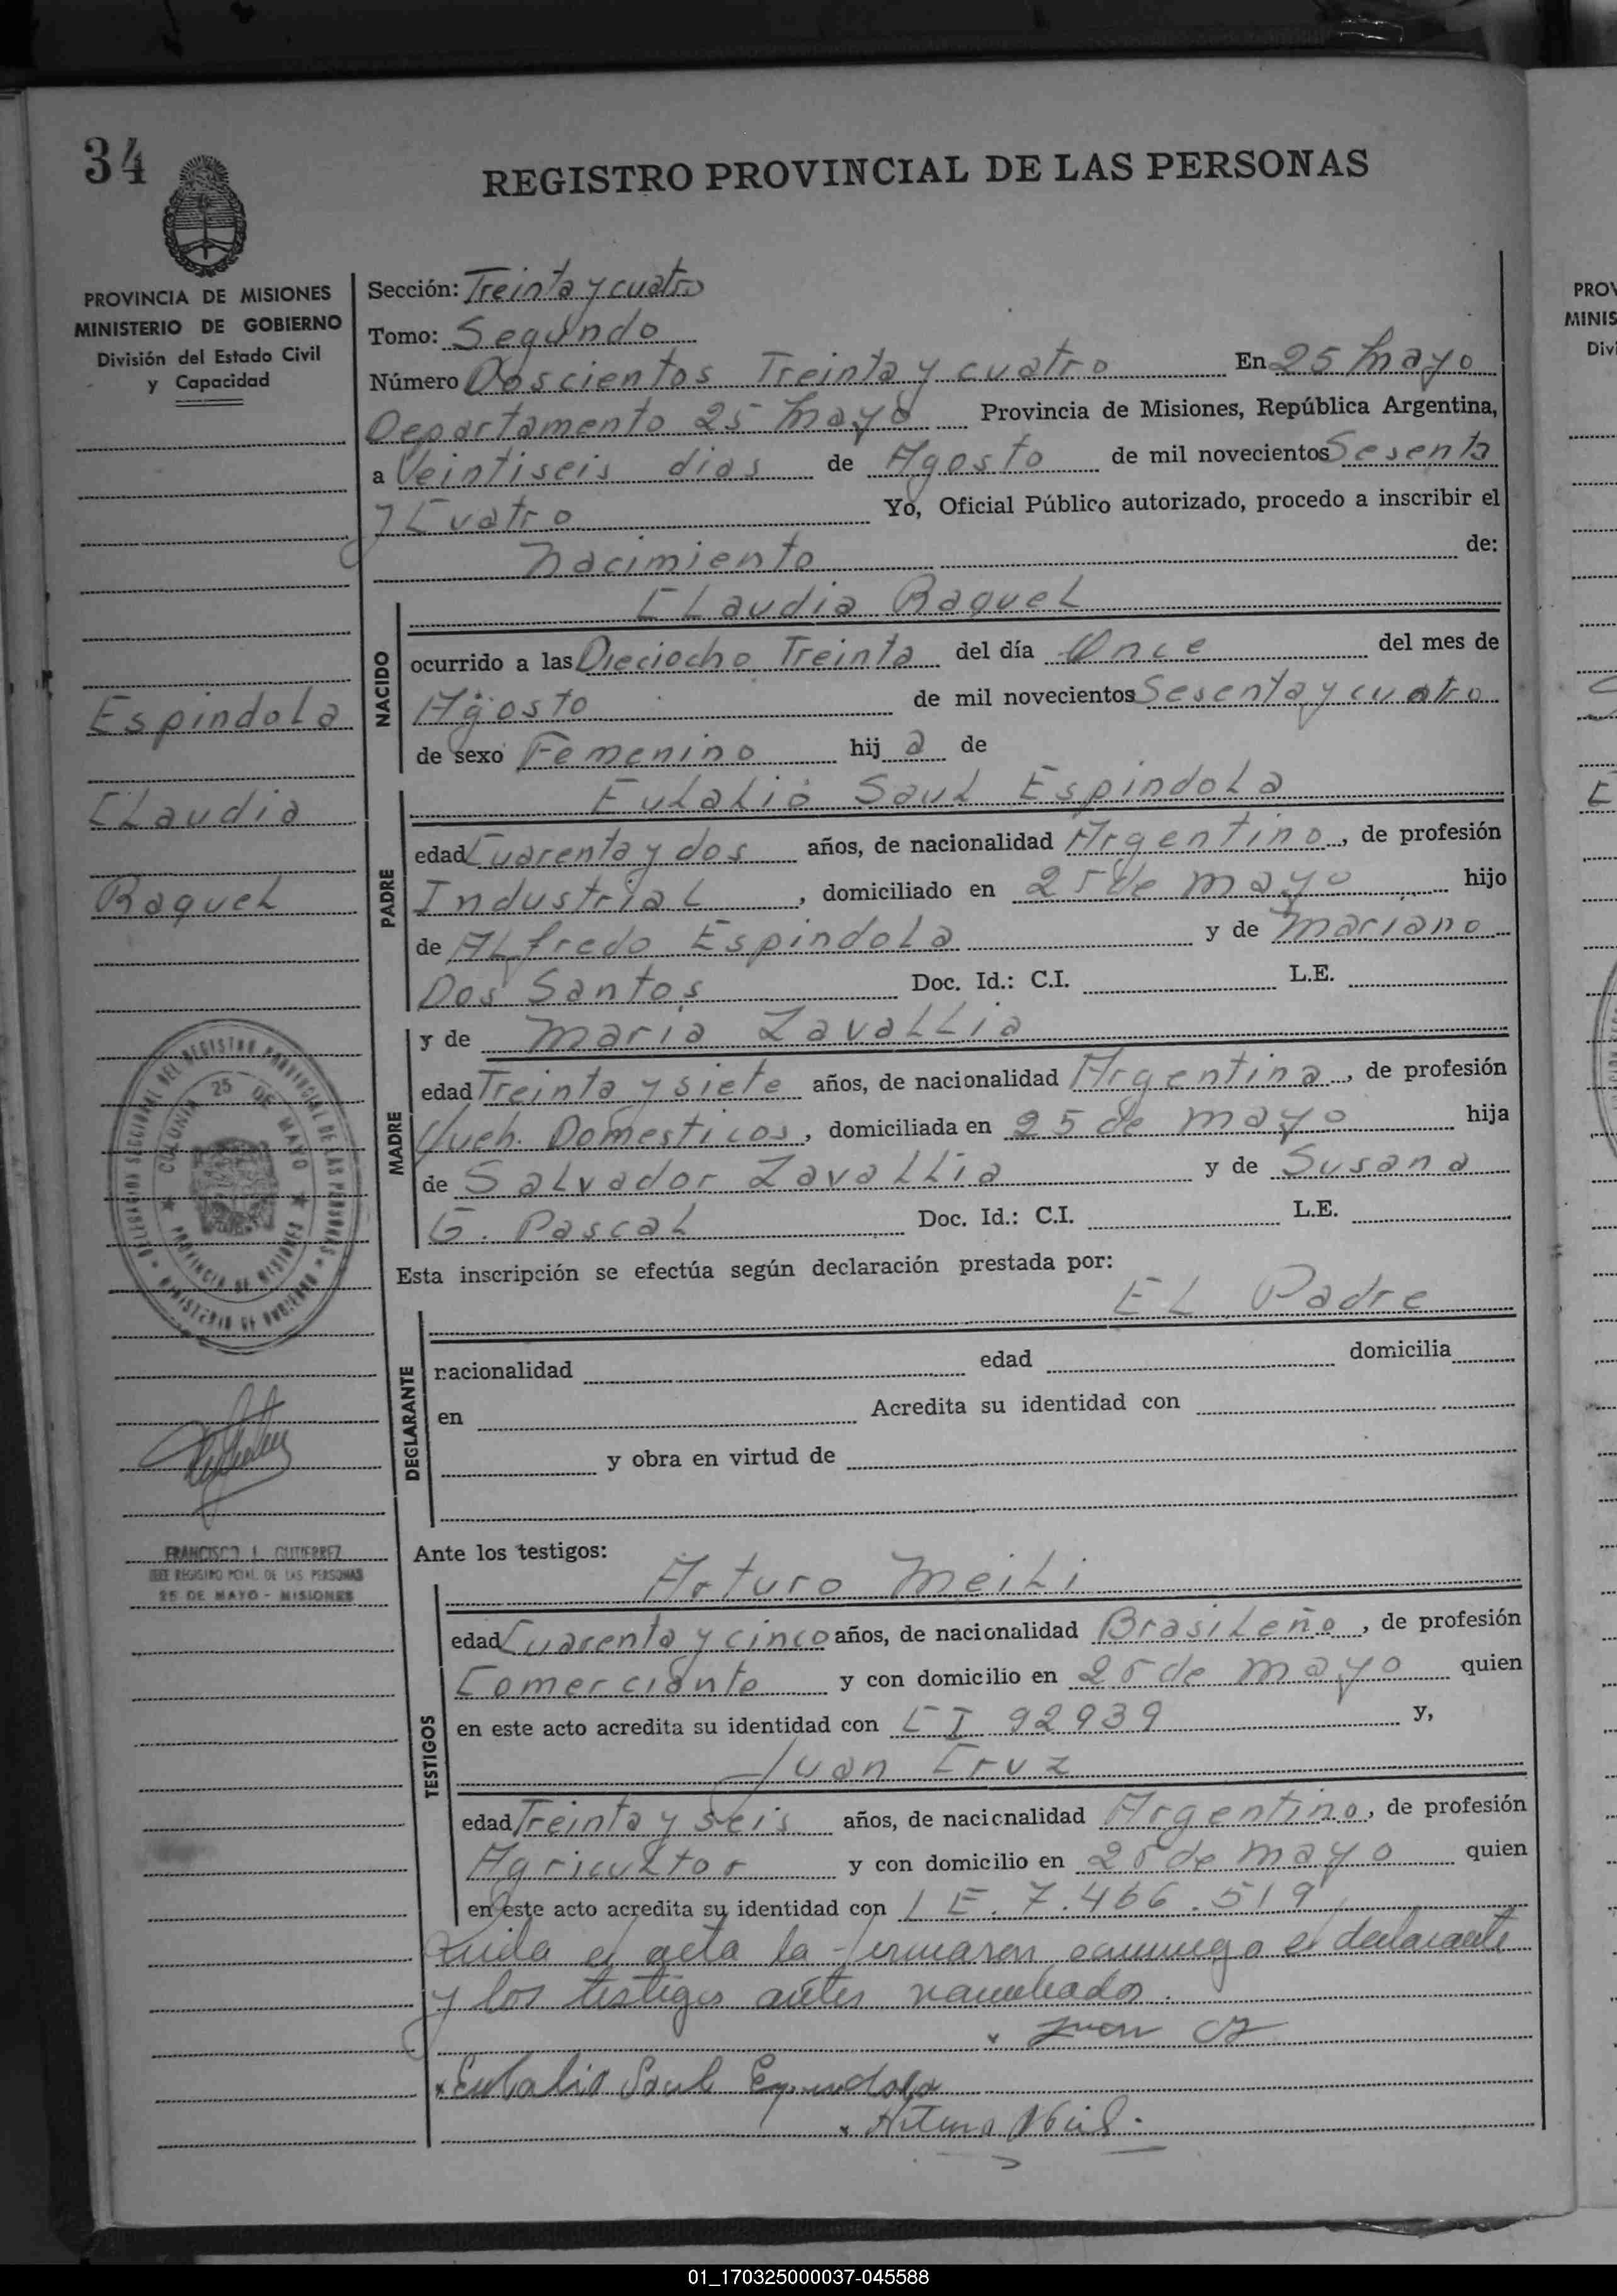 34
REGISTRO PROVINCIAL DE LAS PERSONAS
PROVINCIA DE MISIONES
MINISTERIO DE GOBIERNO
División del Estado Civil
y Capacidad
Espindola
Claudia
Raquel
DELEGACION SECCIONAL DEL REGISTRO PROVINCIAL DE LAS PERSONAS
MINISTERIO DE GOBIERNO
COLONIA 25 DE MAYO
PROVINCIA DE MISIONES
FRANCISCO L. GUTIERREZ
JEFE REGISTRO PCIAL. DE LAS PERSONAS
25 DE MAYO - MISIONES
Sección: Treinta y cuatro
Tomo: Segundo
Número Doscientos Treinta y cuatro En 25 Mayo
Departamento 25 Mayo Provincia de Misiones, República Argentina,
a Veintiseis dias de Agosto de mil novecientos Sesenta
y Cuatro Yo, Oficial Público autorizado, procedo a inscribir el
Nacimiento de:
NACIDO
Claudia Raquel
ocurrido a las Dieciocho Treinta del día Once del mes de
Agosto de mil novecientos Sesenta y cuatro
de sexo Femenino hij a de
PADRE
Eulalio Saul Espindola
edad Cuarenta y dos años, de nacionalidad Argentino, de profesión
Industrial, domiciliado en 25 de Mayo hijo
de Alfredo Espindola y de Mariano
Dos Santos Doc. Id.: C.I. L.E.
MADRE
y de Maria Zavallia
edad Treinta y siete años, de nacionalidad Argentina, de profesión
Queh. Domesticos, domiciliada en 25 de Mayo hija
de Salvador Zavallia y de Susana
G. Pascal Doc. Id.: C.I. L.E.
Esta inscripción se efectúa según declaración prestada por:
El Padre
DECLARANTE
nacionalidad edad domicilia
en Acredita su identidad con
y obra en virtud de
Ante los testigos:
TESTIGOS
Arturo Meili
edad Cuarenta y cinco años, de nacionalidad Brasileño, de profesión
Comerciante y con domicilio en 25 de Mayo quien
en este acto acredita su identidad con CI 92939 y,
Juan Cruz
edad Treinta y seis años, de nacionalidad Argentino, de profesión
Agricultor y con domicilio en 25 de Mayo quien
en este acto acredita su identidad con LE. 7.466.519
Leida el acta la firmaron conmigo el declarante
y los testigos antes nombrados.
x Juan
x Eulalio Saul Espindola
x Arturo Meili
PROV
MINIS
Divi
01_170325000037-045588